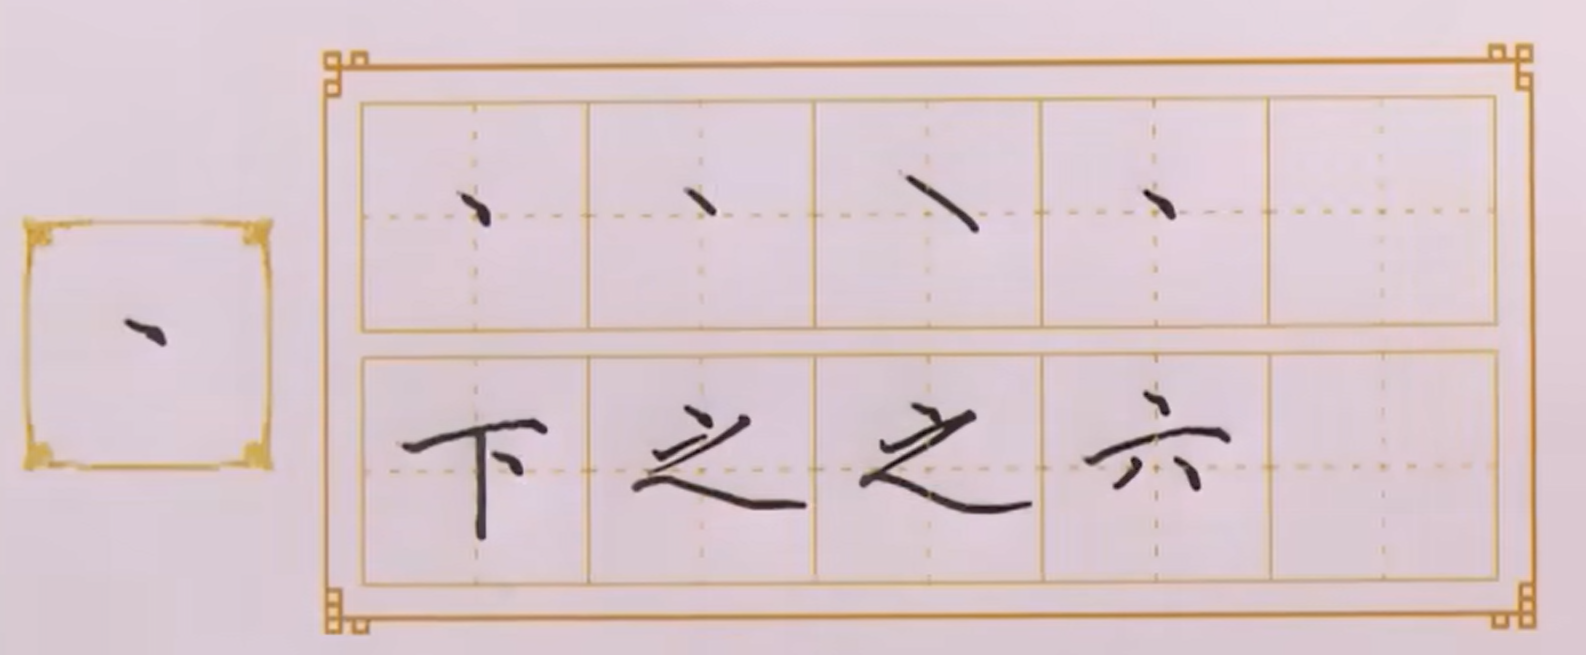 丶
丶丶丶丶
下之之六